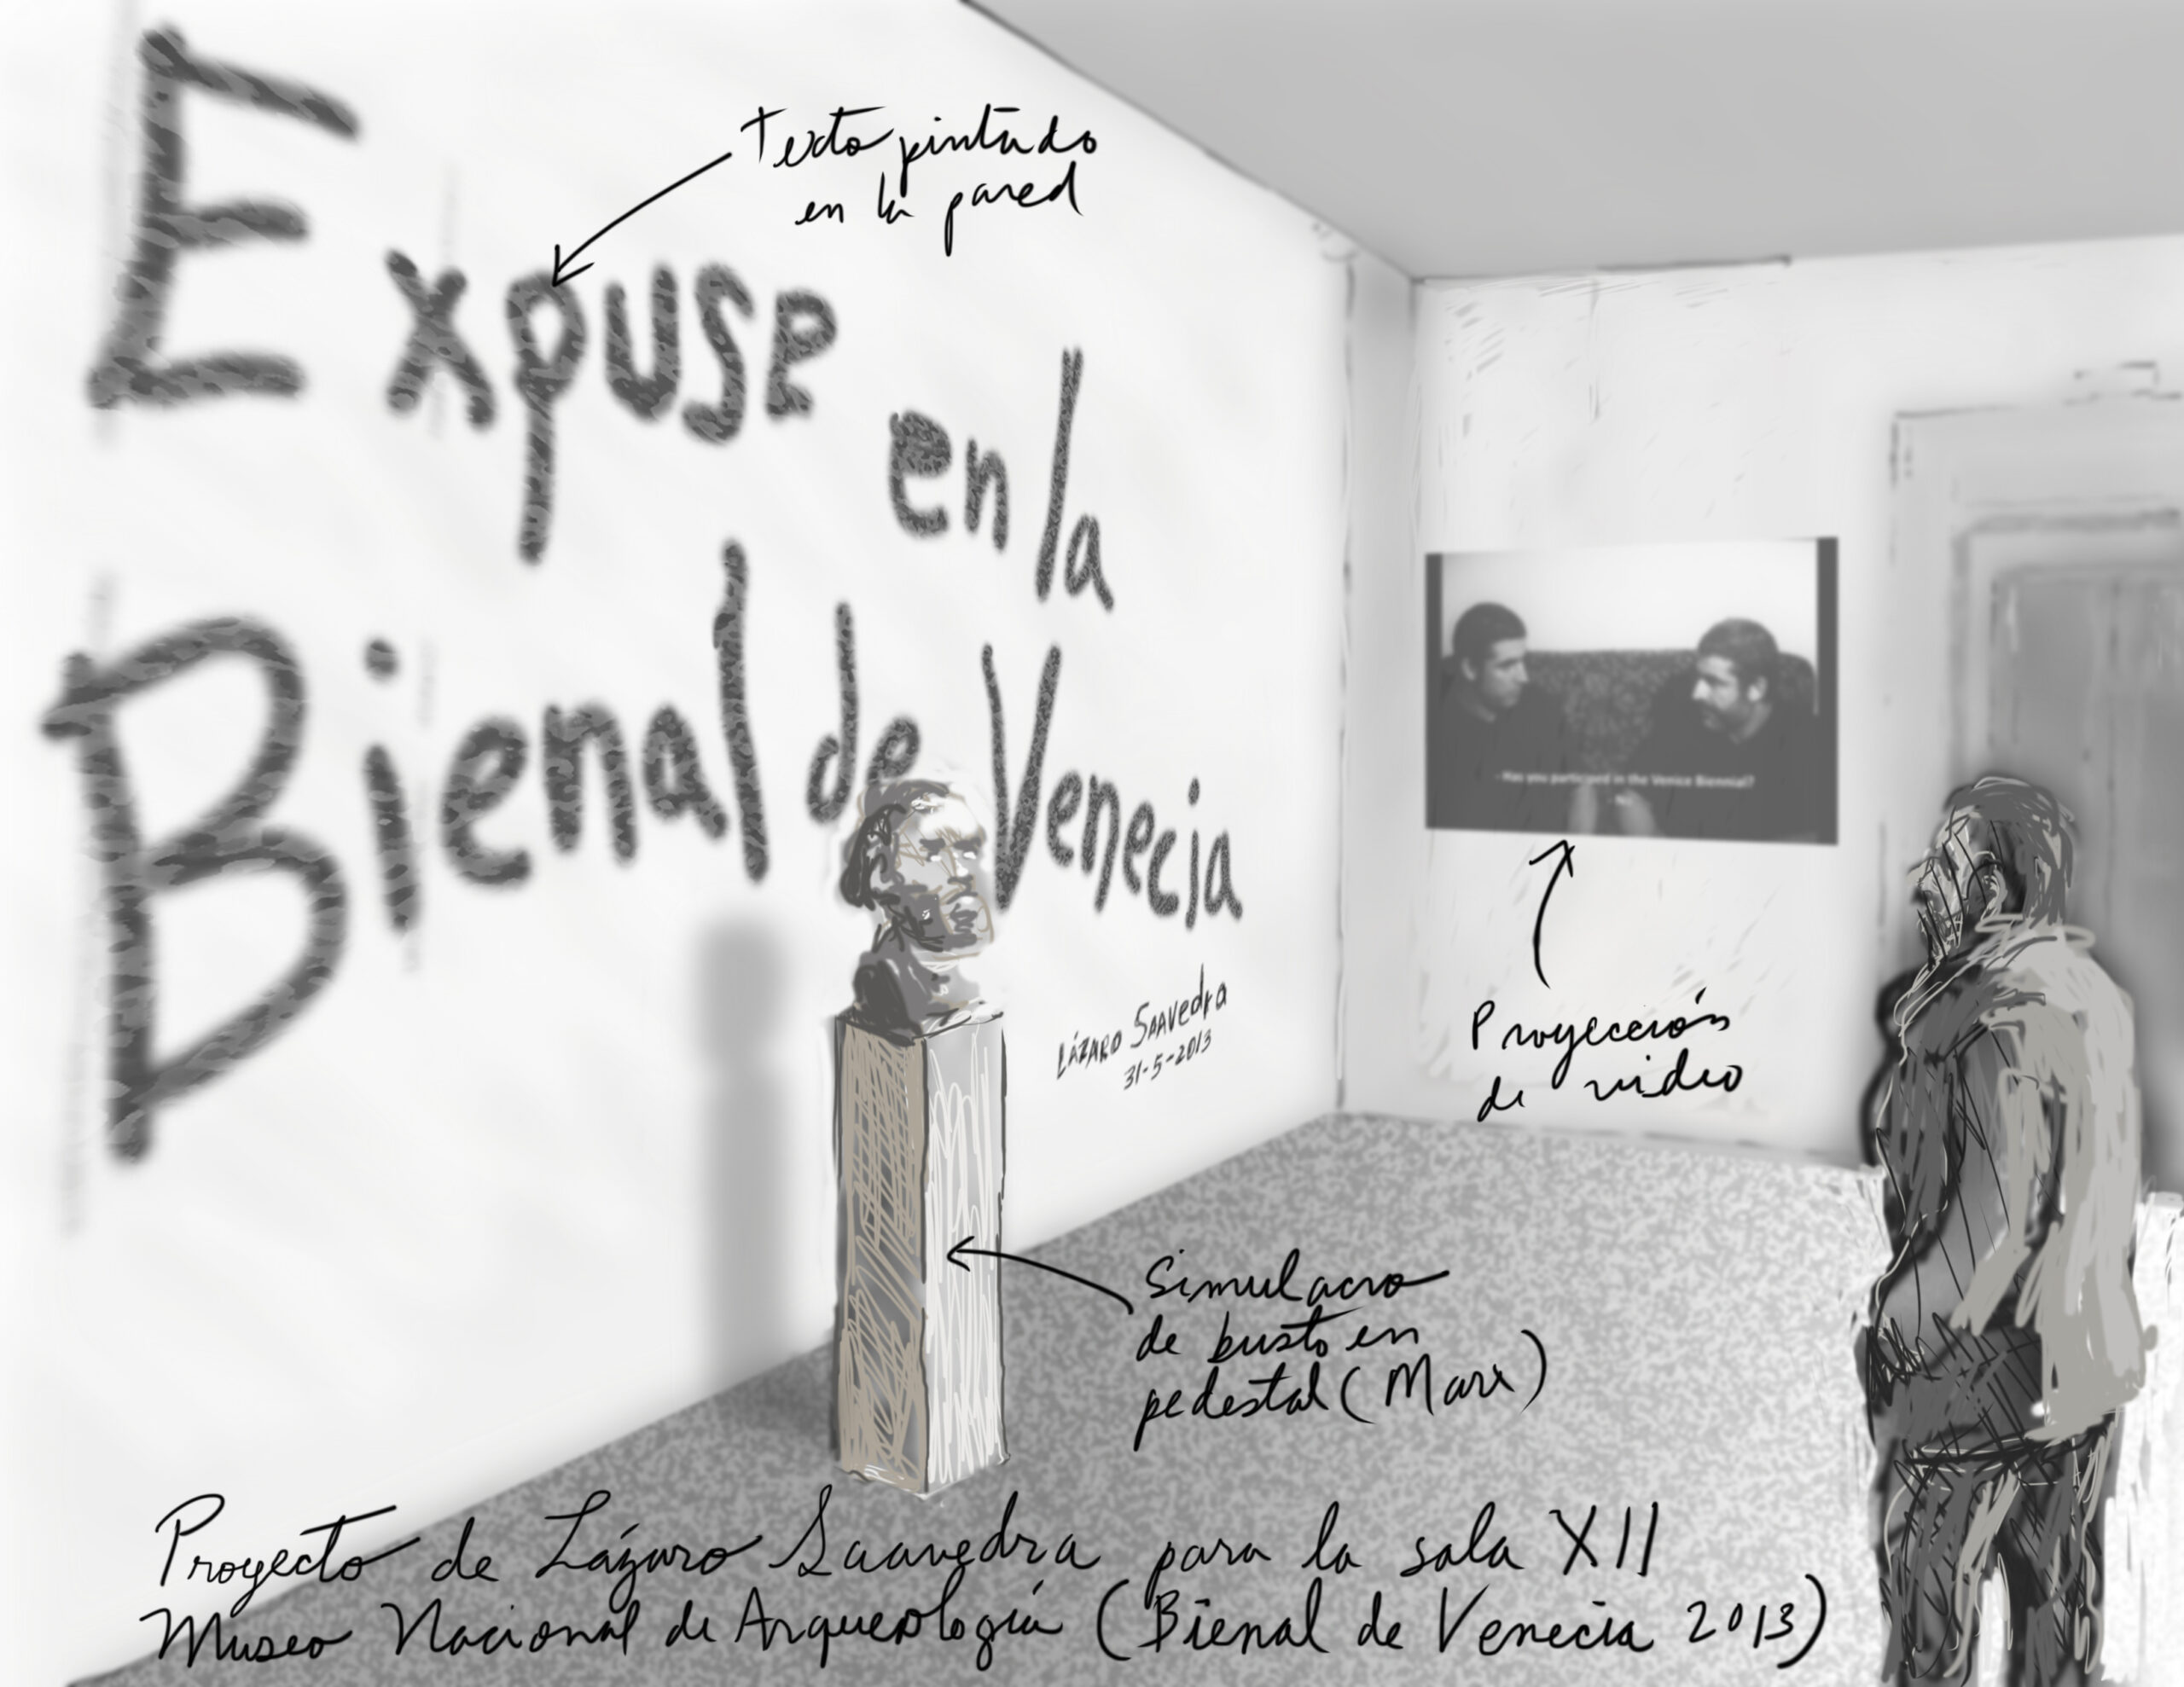 Expuse
en la
Bienal de Venecia
Texto pintado
en la pared
- Has you participed in the Venice Biennial?
LÁZARO SAAVEDRA
31-5-2013
Proyección
de video
Simulacro
de busto en
pedestal (Marx)
Proyecto de Lázaro Saavedra para la sala XII
Museo Nacional de Arqueología (Bienal de Venecia 2013)